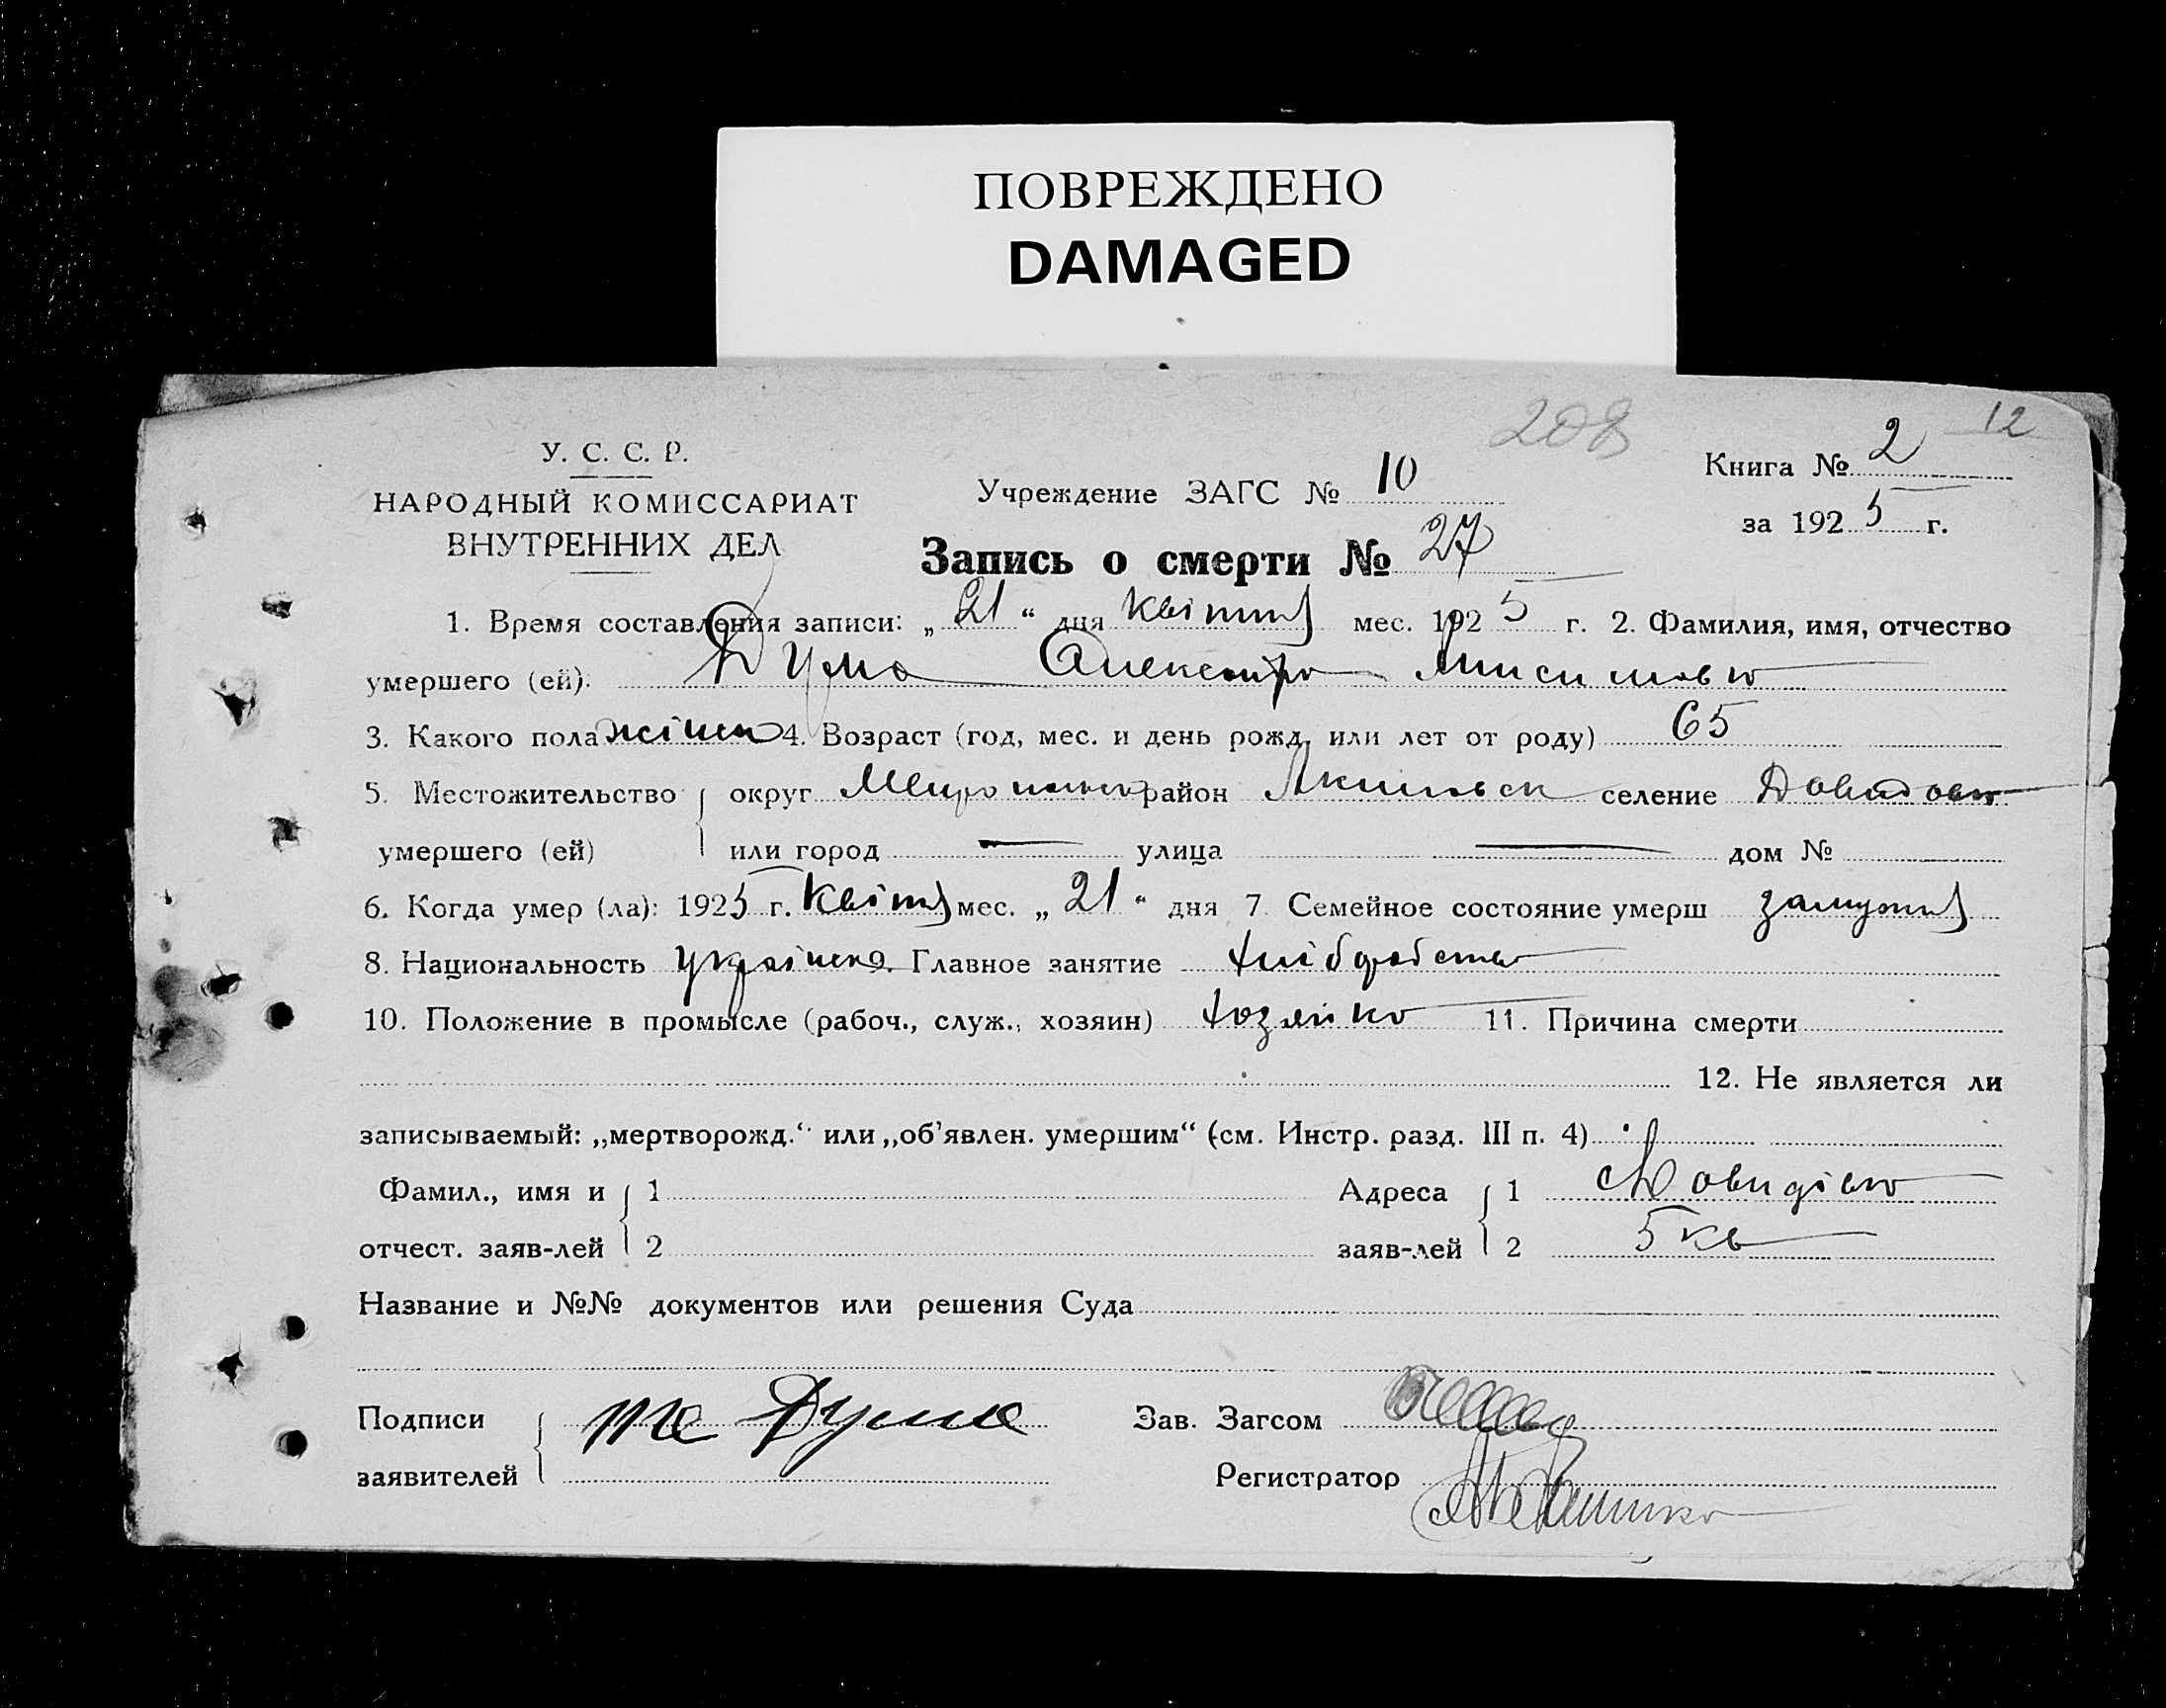 ПОВРЕЖДЕНО
DAMAGED
208
12
У. С. С. Р.
НАРОДНЫЙ КОМИССАРИАТ
ВНУТРЕННИХ ДЕЛ
Учреждение ЗАГС № 10
Книга № 2
за 1925 г.
Запись о смерти № 27
1. Время составления записи: „21“ дня квітня мес. 1925 г. 2. Фамилия, имя, отчество
умершего (ей): Дума Александра
3. Какого пола жіноч 4. Возраст (год, мес. и день рожд. или лет от роду) 65
5. Местожительство округ район Якимовск селение Давидовка
умершего (ей) или город — улица — дом №
6. Когда умер (ла): 1925 г. квітня мес. „21“ дня 7 Семейное состояние умерш замужня
8. Национальность українка 9. Главное занятие хлібробство
10. Положение в промысле (рабоч., служ., хозяин) хозяйка 11. Причина смерти
12. Не является ли
записываемый: „мертворожд.“ или „об’явлен. умершим“ (см. Инстр. разд. III п. 4)
Фамил., имя и 1 Адреса 1 Давидівка
отчест. заяв-лей 2 заяв-лей 2 5 кв
Название и №№ документов или решения Суда
Подписи Дума Зав. Загсом
заявителей Регистратор